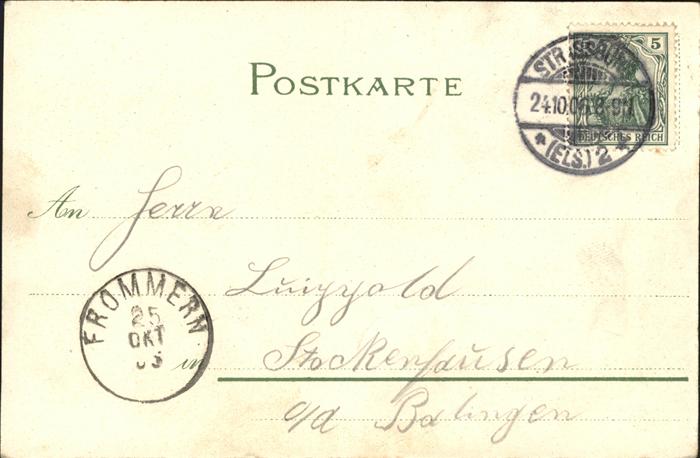 POSTKARTE
5
DEUTSCHES REICH
STRASSBURG
24.10.
8-9N
* (ELS.) 2 *
An Herrn
Luippold
in Stockenhausen
o/d Balingen
FROMMERN
25
OKT
03